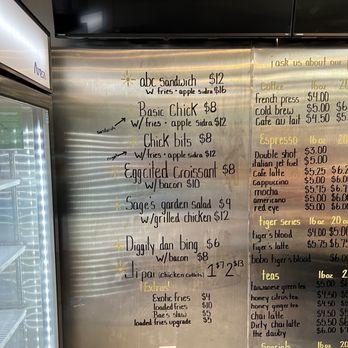 abc sandwich $12
w/ fries + apple sidra $16
Basic Chick $8
Sandwich
w/ fries + apple sidra $12
Chick bits $8
w/ fries + apple sidra $12
Eggcited Croissant $8
w/ bacon $10
Sage's garden salad $9
w/ grilled chicken $12
Diggily dan bing $6
w/ bacon $8
Ji pai (chicken cutlets) 1 $7 2 $13
Extras!
Exotic fries $4
loaded fries $10
Rae's slaw $5
loaded fries upgrade $5
ask us about our
Coffee 16oz 20
french press $4.00
cold brew $5.00 $6
Cafe au lait $4.50 $5
Espresso 16oz 20
Double shot $3.00
italian jet fuel $5.00
Cafe latte $5.25 $6.2
Cappuccino $5.00 $6.0
mocha $5.75 $6.7
americano $5.00
red eye $5.00 $6
tiger series 16oz 20
tiger's blood $4.00 $5.0
tiger's latte $5.75 $6.7
boba tiger's blood $6.00
teas 16oz 20
taiwanese green tea $5.00
honey citrus tea $4.50
honey ginger tea $4.50
chai latte $4.50
Dirty chai latte $5.50
the dauby $6.00
Specials 16oz 20